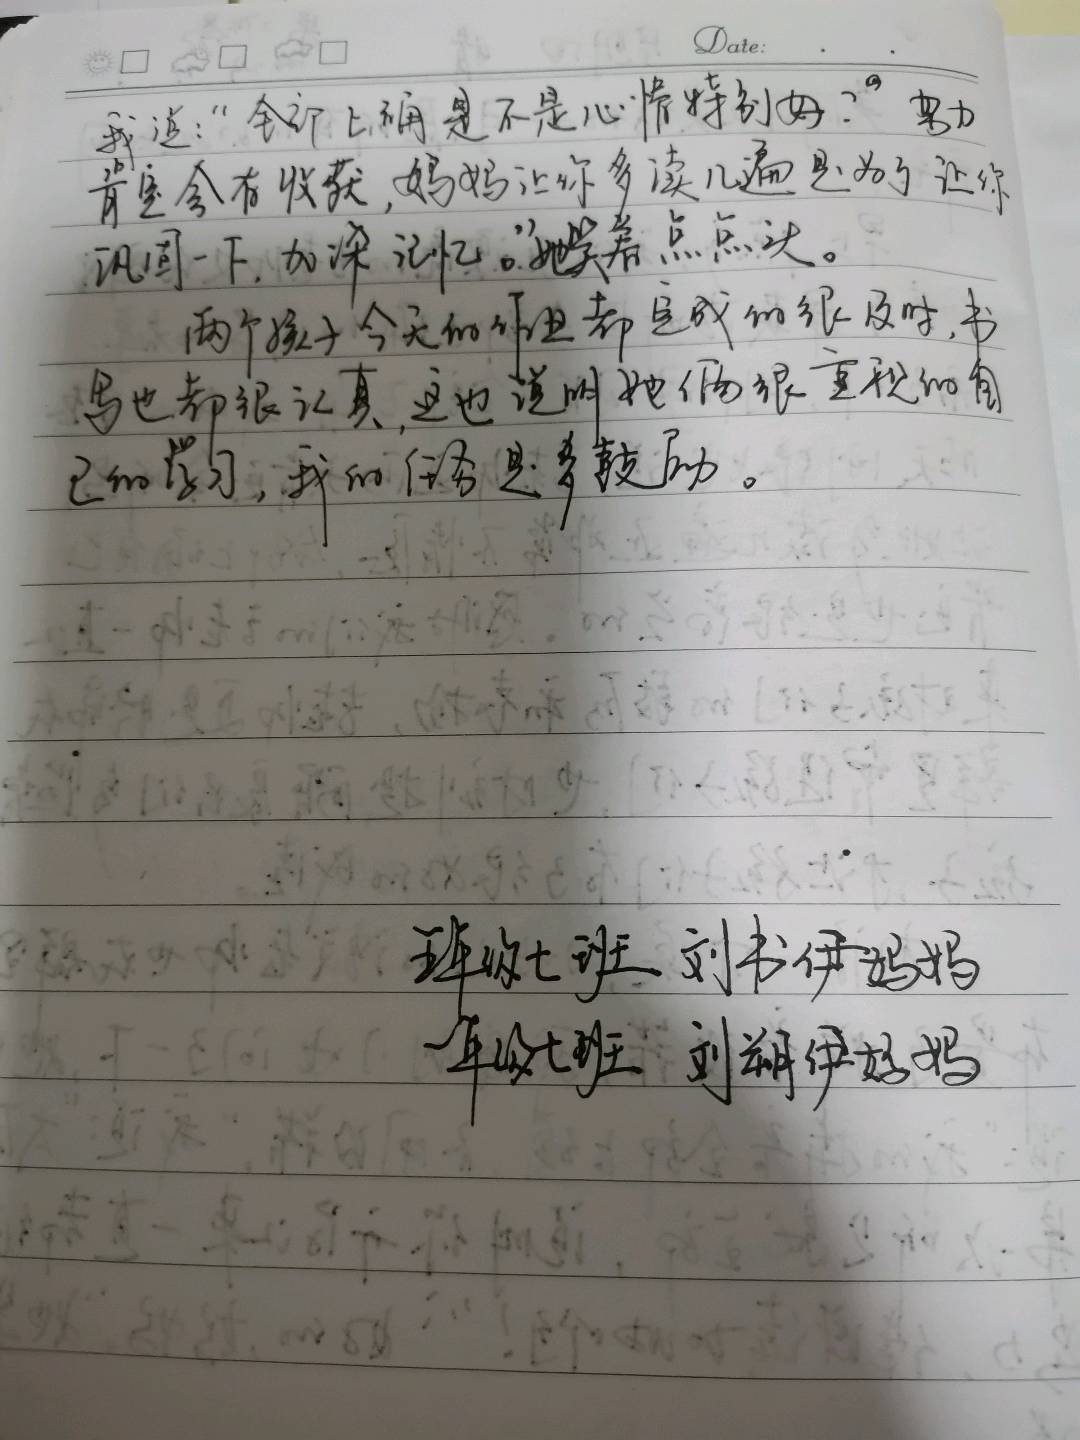 Date:
我道:“全部上确是不是心情特别好?”努力
肯定会有收获,妈妈让你多读几遍是为了让你
巩固一下,加深记忆。”她笑着点点头。
两个孩子今天的作业都完成的很及时,书
写也都很认真,这也说明她俩很重视的自
己的学习,我的任务是多鼓励。
班级七班 刘书伊妈妈
一年级七班 刘朔伊妈妈